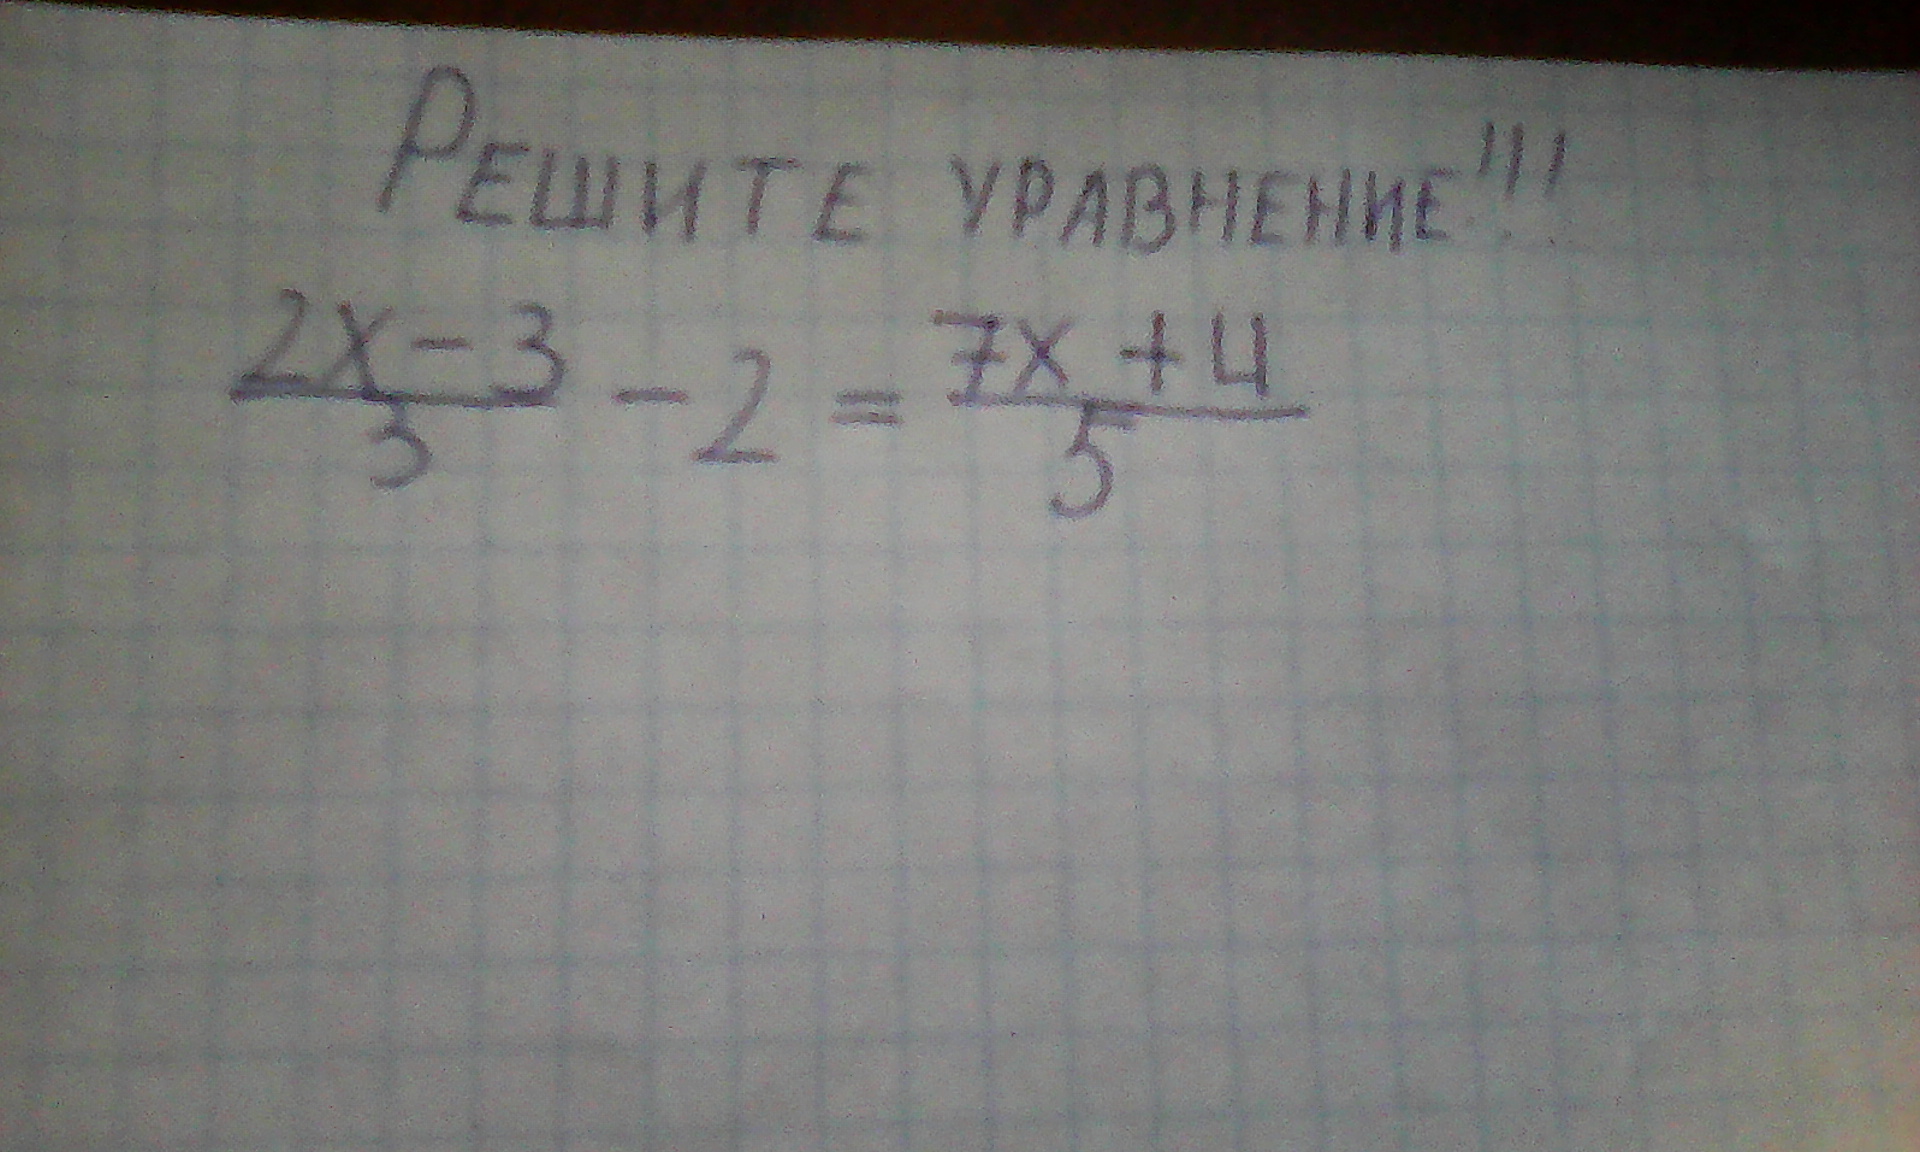 Решите уравнение!!!
(2x - 3)/3 - 2 = (7x + 4)/5